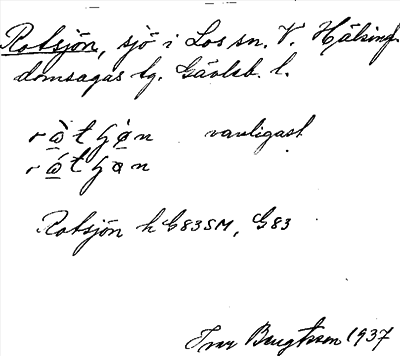 Rotsjön, sjö i Los sn. V. Hälsing.
domsagas tg. Gävleb. l.
ròtʃòn vanligast
rótʃɑn
Rotsjön h G83SM, G83
Ivar Bengtsson 1937